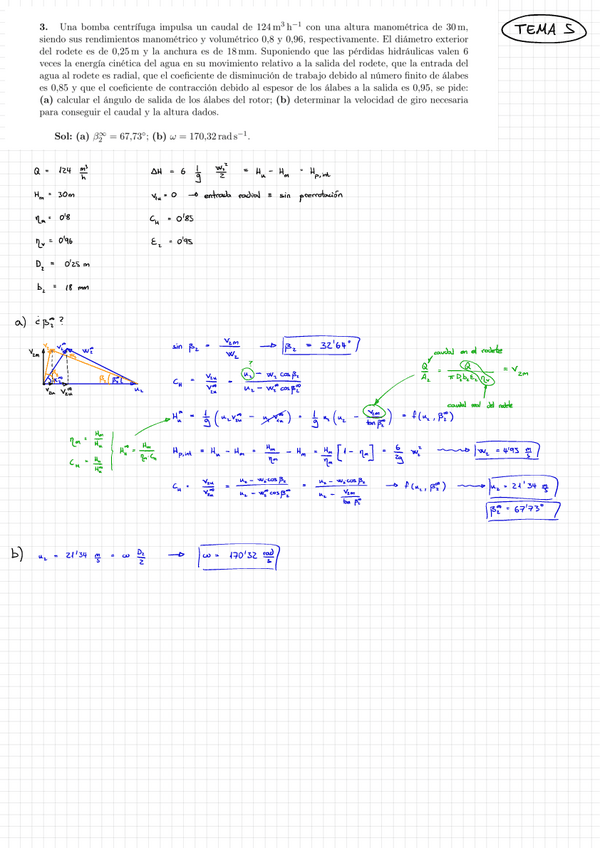 TEMA 5
3. Una bomba centrífuga impulsa un caudal de 124 m³ h⁻¹ con una altura manométrica de 30 m,
siendo sus rendimientos manométrico y volumétrico 0,8 y 0,96, respectivamente. El diámetro exterior
del rodete es de 0,25 m y la anchura es de 18 mm. Suponiendo que las pérdidas hidráulicas valen 6
veces la energía cinética del agua en su movimiento relativo a la salida del rodete, que la entrada del
agua al rodete es radial, que el coeficiente de disminución de trabajo debido al número finito de álabes
es 0,85 y que el coeficiente de contracción debido al espesor de los álabes a la salida es 0,95, se pide:
(a) calcular el ángulo de salida de los álabes del rotor; (b) determinar la velocidad de giro necesaria
para conseguir el caudal y la altura dados.
Sol: (a) β₂^∞ = 67,73°; (b) ω = 170,32 rad s⁻¹.
Q = 124 m³/h
ΔH = 6 1/g w₂²/2 = Hᵤ - Hₘ = H_p,int
Hₘ = 30m
v₁ᵤ = 0 → entrada radial = sin prerrotación
ηₘ = 0'8
C_H = 0'85
ηᵥ = 0'96
ε₂ = 0'95
D₂ = 0'25 m
b₂ = 18 mm
a) ¿β₂^∞?
sin β₂ = v₂ₘ/w₂ → β₂ = 32'64°
caudal en el rodete
Q/A₂ = Q/(π D₂ b₂ ε₂ ηᵥ) = v₂ₘ
caudal real del rodete
C_H = v₂ᵤ/v₂ᵤ^∞ = (u₂ - w₂ cos β₂)/(u₂ - w₂^∞ cos β₂^∞)
Hᵤ^∞ = 1/g (u₂ v₂ᵤ^∞ - u₁ v₁ᵤ^∞) = 1/g u₂ (u₂ - v₂ₘ/tan β₂^∞) = f(u₂, β₂^∞)
ηₘ = Hₘ/Hᵤ
C_H = Hᵤ/Hᵤ^∞
Hᵤ^∞ = Hₘ/(ηₘ C_H)
H_p,int = Hᵤ - Hₘ = Hₘ/ηₘ - Hₘ = Hₘ/ηₘ [1 - ηₘ] = 6/2g w₂² → w₂ = 4'95 m/s
C_H = v₂ᵤ/v₂ᵤ^∞ = (u₂ - w₂ cos β₂)/(u₂ - w₂^∞ cos β₂^∞) = (u₂ - w₂ cos β₂)/(u₂ - v₂ₘ/tan β₂^∞) → f(u₂, β₂^∞) → u₂ = 21'34 m/s
β₂^∞ = 67'73°
b) u₂ = 21'34 m/s = ω D₂/2 → ω = 170'32 rad/s